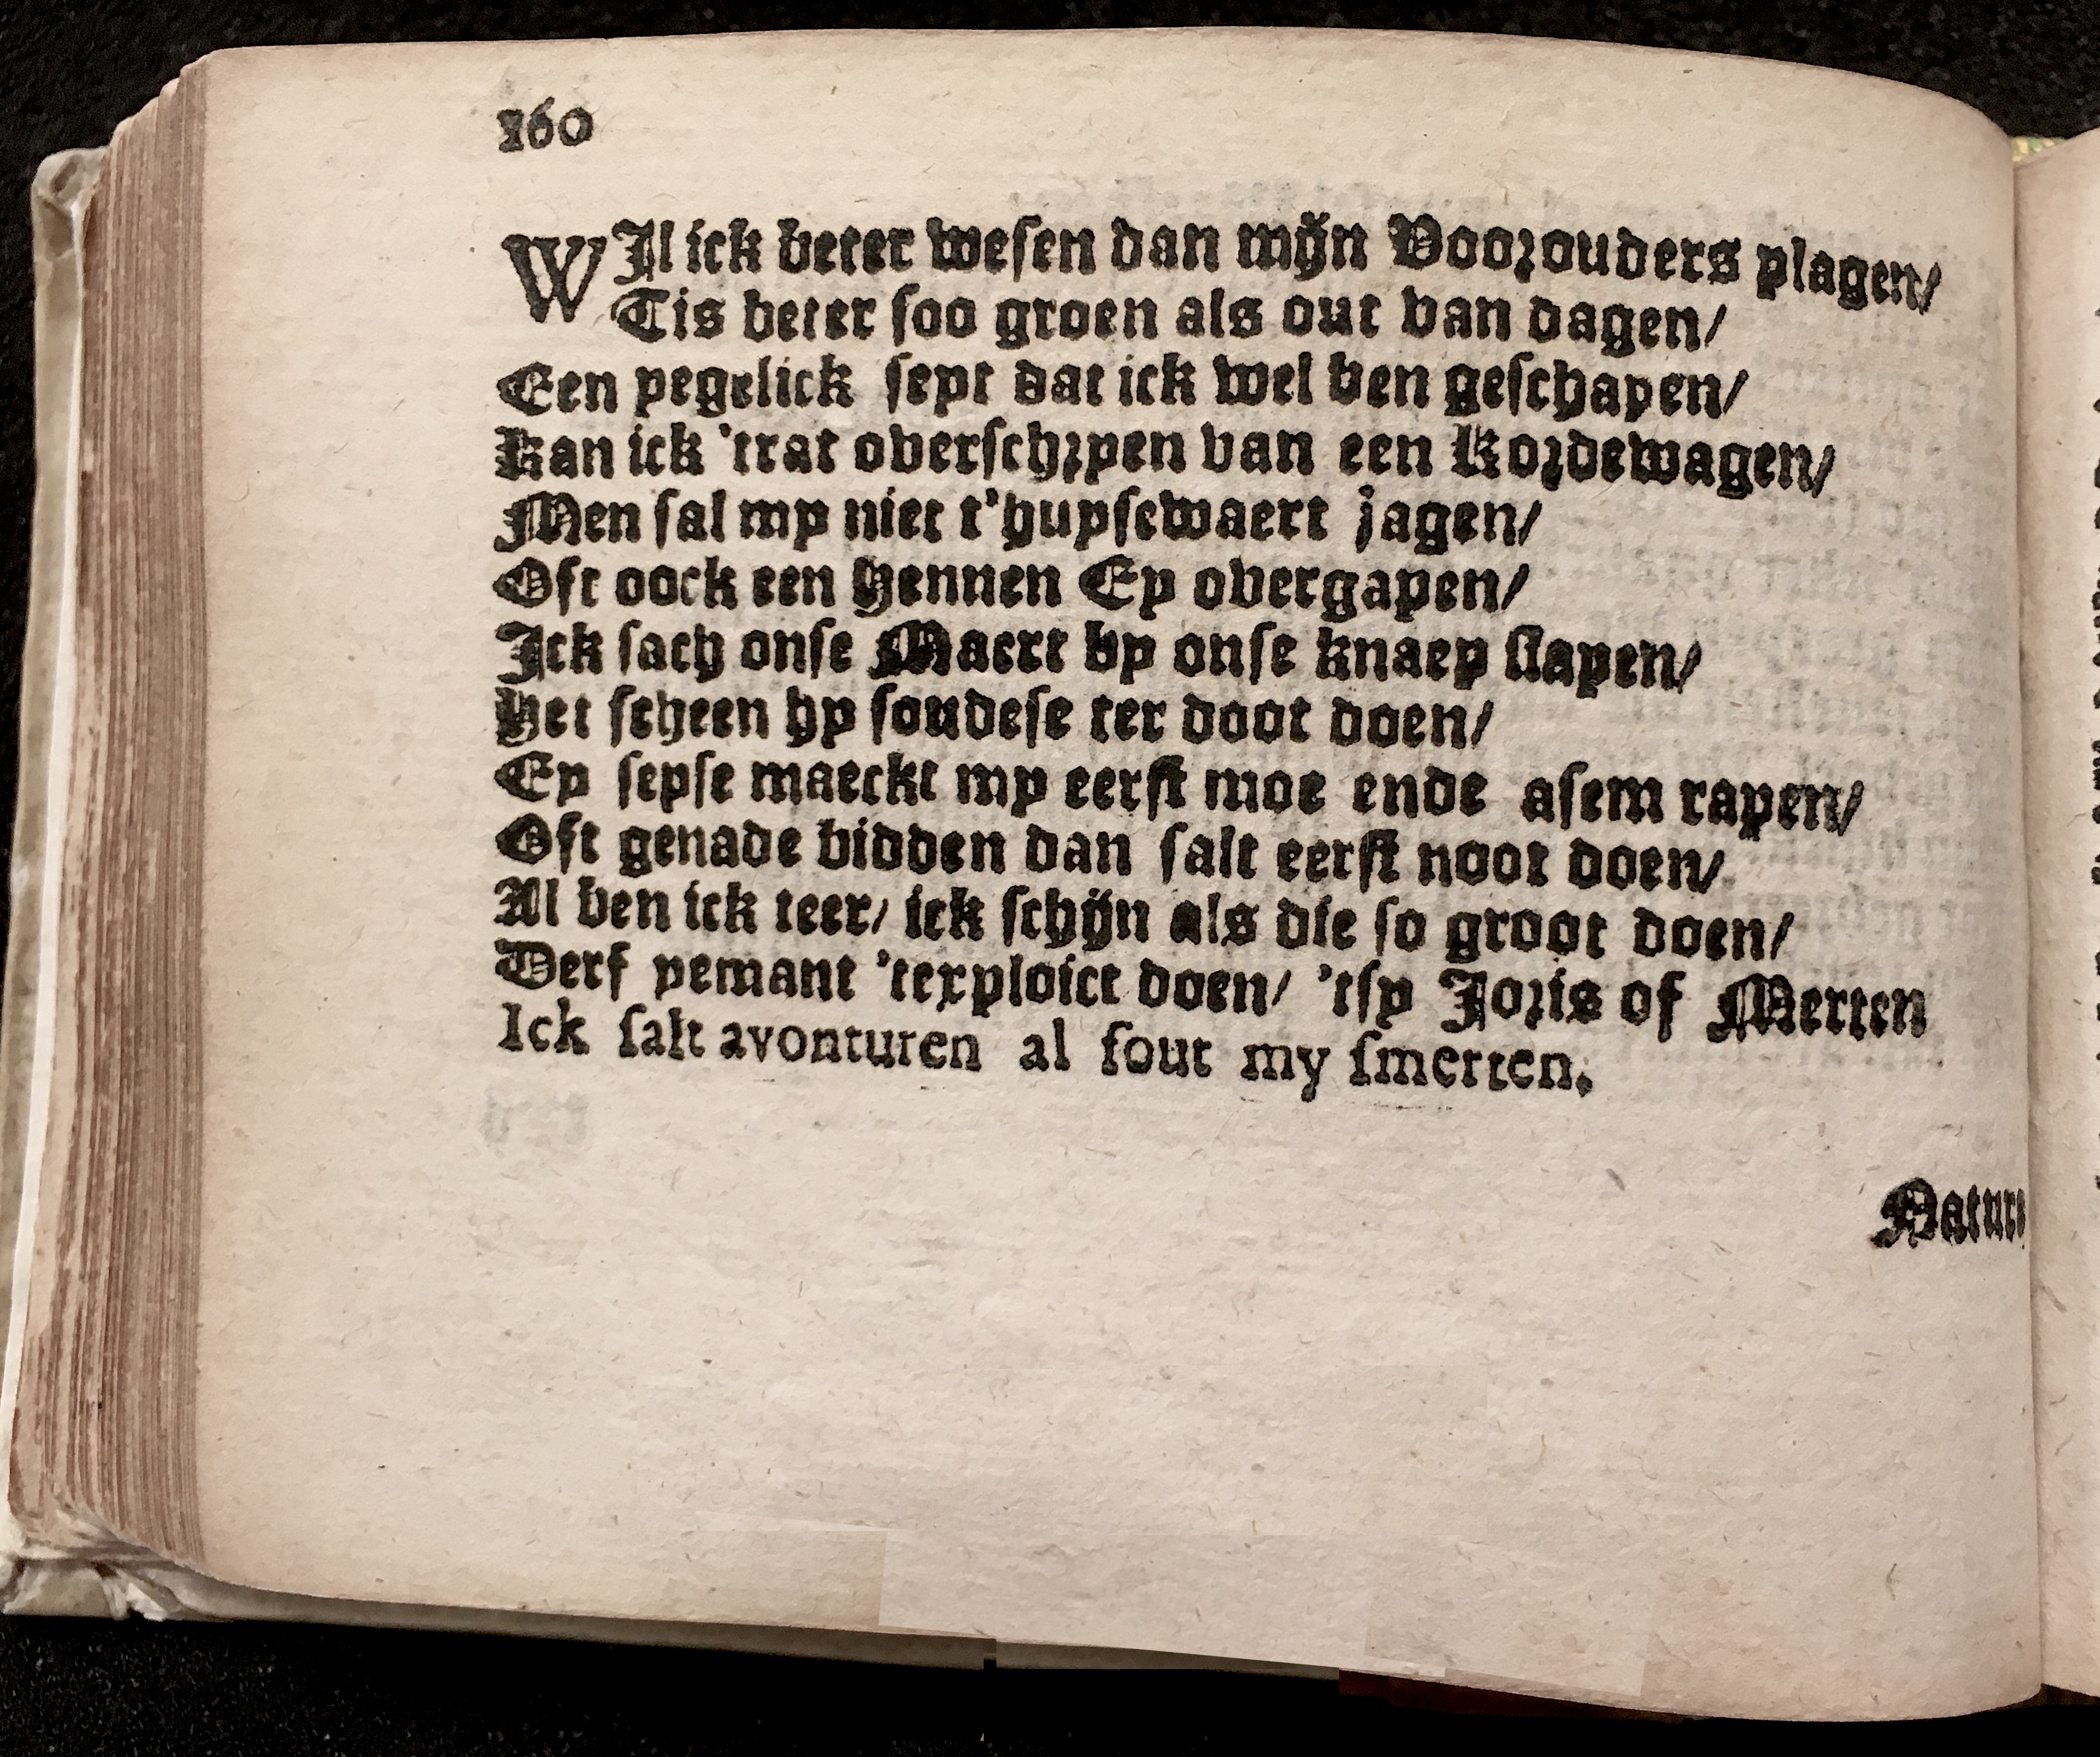 160
WIl ick beter wesen dan mijn Voorouders plagen/
Tis beter soo groen als out van dagen/
Een yegelick seyt dat ick wel ben geschapen/
Kan ick 'trat overschryen van een Kordewagen/
Men sal my niet t'huysewaert jagen/
Oft oock een Hennen Ey overgapen/
Ick sach onse Maert by onse knaep slapen/
Het scheen hy soudese ter doot doen/
Ey seyse maeckt my eerst moe ende asem rapen/
Oft genade bidden dan salt eerst noot doen/
Al ben ick teer/ ick schijn als die so groot doen/
Derf yemant 'texploict doen/ 'tsy Joris of Merten
Ick salt avonturen al sout my smerten.